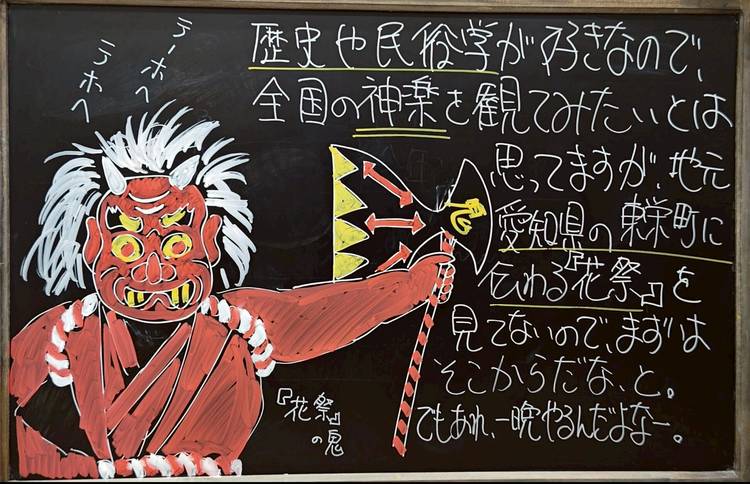 歴史や民俗学が好きなので、
全国の神楽を観てみたいとは
思ってますが、地元
愛知県の東栄町に
伝わる『花祭』を
見てないので、まずは
そこからだな、と。
でもあれ、一晩やるんだよなー。
テーホヘ
テホヘ
『花祭』
の鬼